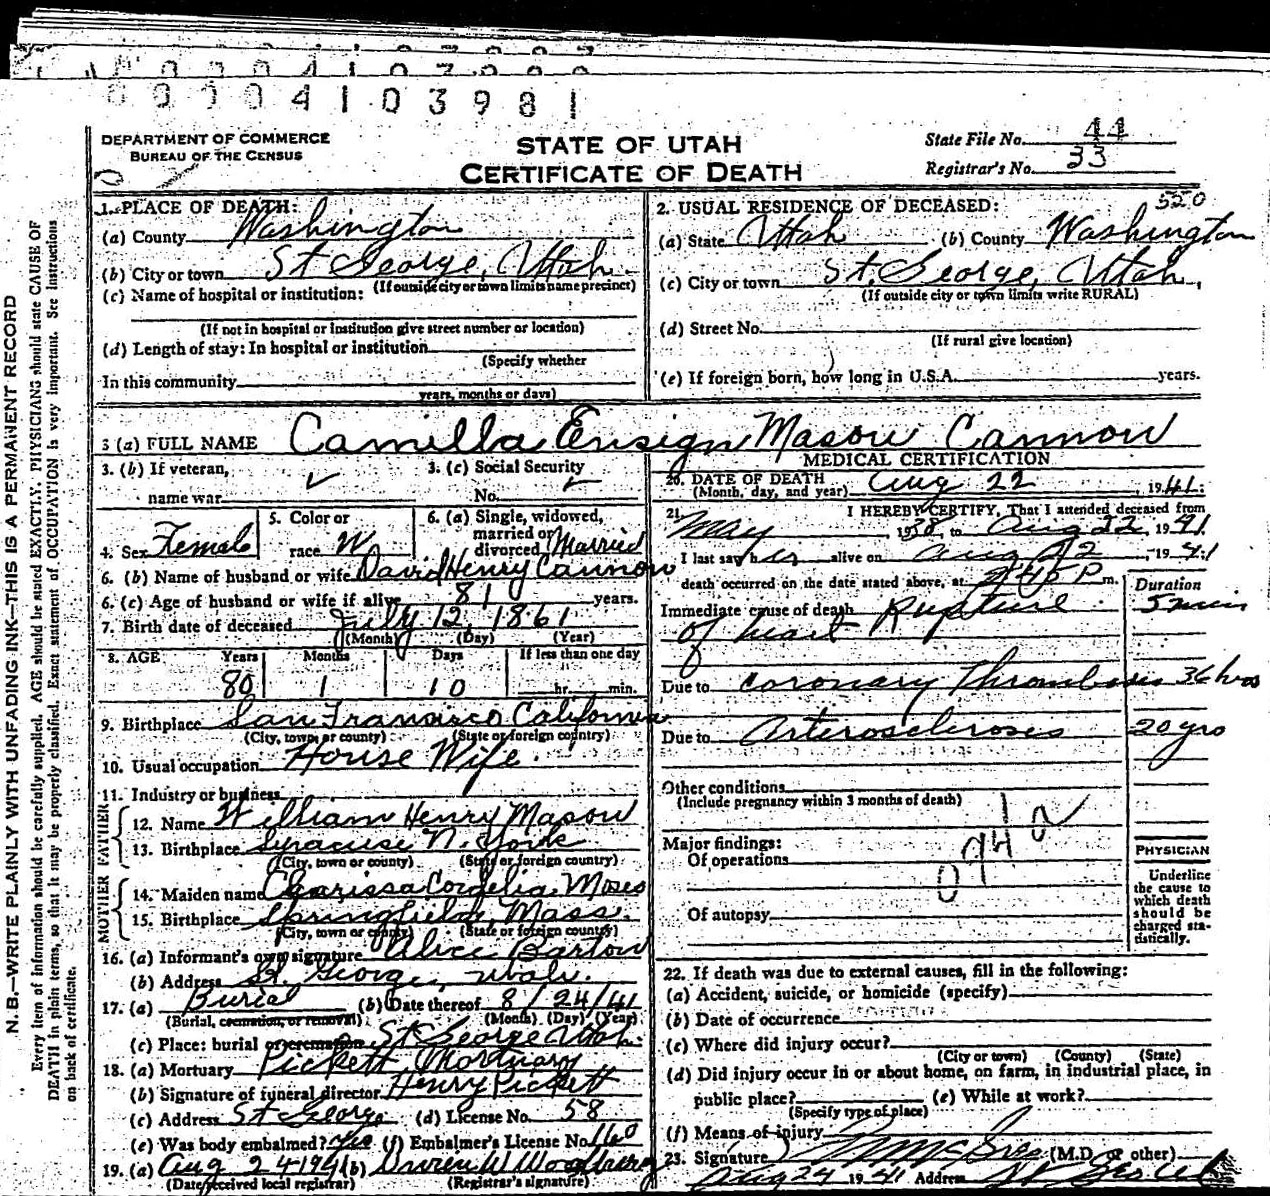 0004103981
DEPARTMENT OF COMMERCE
BUREAU OF THE CENSUS
STATE OF UTAH
CERTIFICATE OF DEATH
State File No. 44
Registrar's No. 33
N.B.—WRITE PLAINLY WITH UNFADING INK—THIS IS A PERMANENT RECORD
Every item of information should be carefully supplied. AGE should be stated EXACTLY. PHYSICIANS should state CAUSE OF
DEATH in plain terms, so that it may be properly classified. Exact statement of OCCUPATION is very important. See instructions
on back of certificate.
1. PLACE OF DEATH:
(a) County Washington
(b) City or town St George, Utah
(If outside city or town limits name precinct)
(c) Name of hospital or institution:
(If not in hospital or institution give street number or location)
(d) Length of stay: In hospital or institution
(Specify whether
In this community
years, months or days)
2. USUAL RESIDENCE OF DECEASED: 520
(a) State Utah (b) County Washington
(c) City or town St. George, Utah,
(If outside city or town limits write RURAL)
(d) Street No.
(If rural give location)
(e) If foreign born, how long in U.S.A. years.
3 (a) FULL NAME Camilla Ensign Mason Cannon
3. (b) If veteran,
name war
3. (c) Social Security
No.
4. Sex Female
5. Color or
race W
6. (a) Single, widowed,
married or
divorced Married
6. (b) Name of husband or wife David Henry Cannon
6. (c) Age of husband or wife if alive 81 years.
7. Birth date of deceased July 12, 1861
(Month) (Day) (Year)
8. AGE Years Months Days If less than one day
80 1 10 hr. min.
9. Birthplace San Francisco California
(City, town or county) (State or foreign country)
10. Usual occupation House Wife
11. Industry or business
FATHER
12. Name William Henry Mason
13. Birthplace Syracuse N. York
(City, town or county) (State or foreign country)
MOTHER
14. Maiden name Clarissa Cordelia Moses
15. Birthplace Springfield, Mass.
(City, town or county) (State or foreign country)
16. (a) Informant's own signature Alice Barton
(b) Address St. George, Utah.
17. (a) Burial (b) Date thereof 8/24/41
(Burial, cremation, or removal) (Month) (Day) (Year)
(c) Place: burial or cremation St George Utah.
18. (a) Mortuary Pickett Mortuary
(b) Signature of funeral director Henry Pickett
(c) Address St George (d) License No. 58
(e) Was body embalmed? Yes (f) Embalmer's License No. 160
19. (a) Aug 24 1941 (b)
(Date received local registrar) (Registrar's signature)
MEDICAL CERTIFICATION
20. DATE OF DEATH
(Month, day, and year) Aug 22, 1941.
21. I HEREBY CERTIFY, That I attended deceased from
May 1938, to Aug 22, 1941
I last saw her alive on Aug 22, 1941
death occurred on the date stated above, at 2:45 P m.
Duration
Immediate cause of death Rupture 5 min
of heart
Due to Coronary Thrombosis 36 hrs
Due to Arterosclerosis 20 yrs
Other conditions
(Include pregnancy within 3 months of death)
Major findings:
Of operations
Of autopsy
PHYSICIAN
Underline
the cause to
which death
should be
charged sta-
tistically.
22. If death was due to external causes, fill in the following:
(a) Accident, suicide, or homicide (specify)
(b) Date of occurrence
(c) Where did injury occur?
(City or town) (County) (State)
(d) Did injury occur in or about home, on farm, in industrial place, in
public place? (e) While at work?
(Specify type of place)
(f) Means of injury
23. Signature (M.D. or other)
Aug 24 1941 Address St Geo